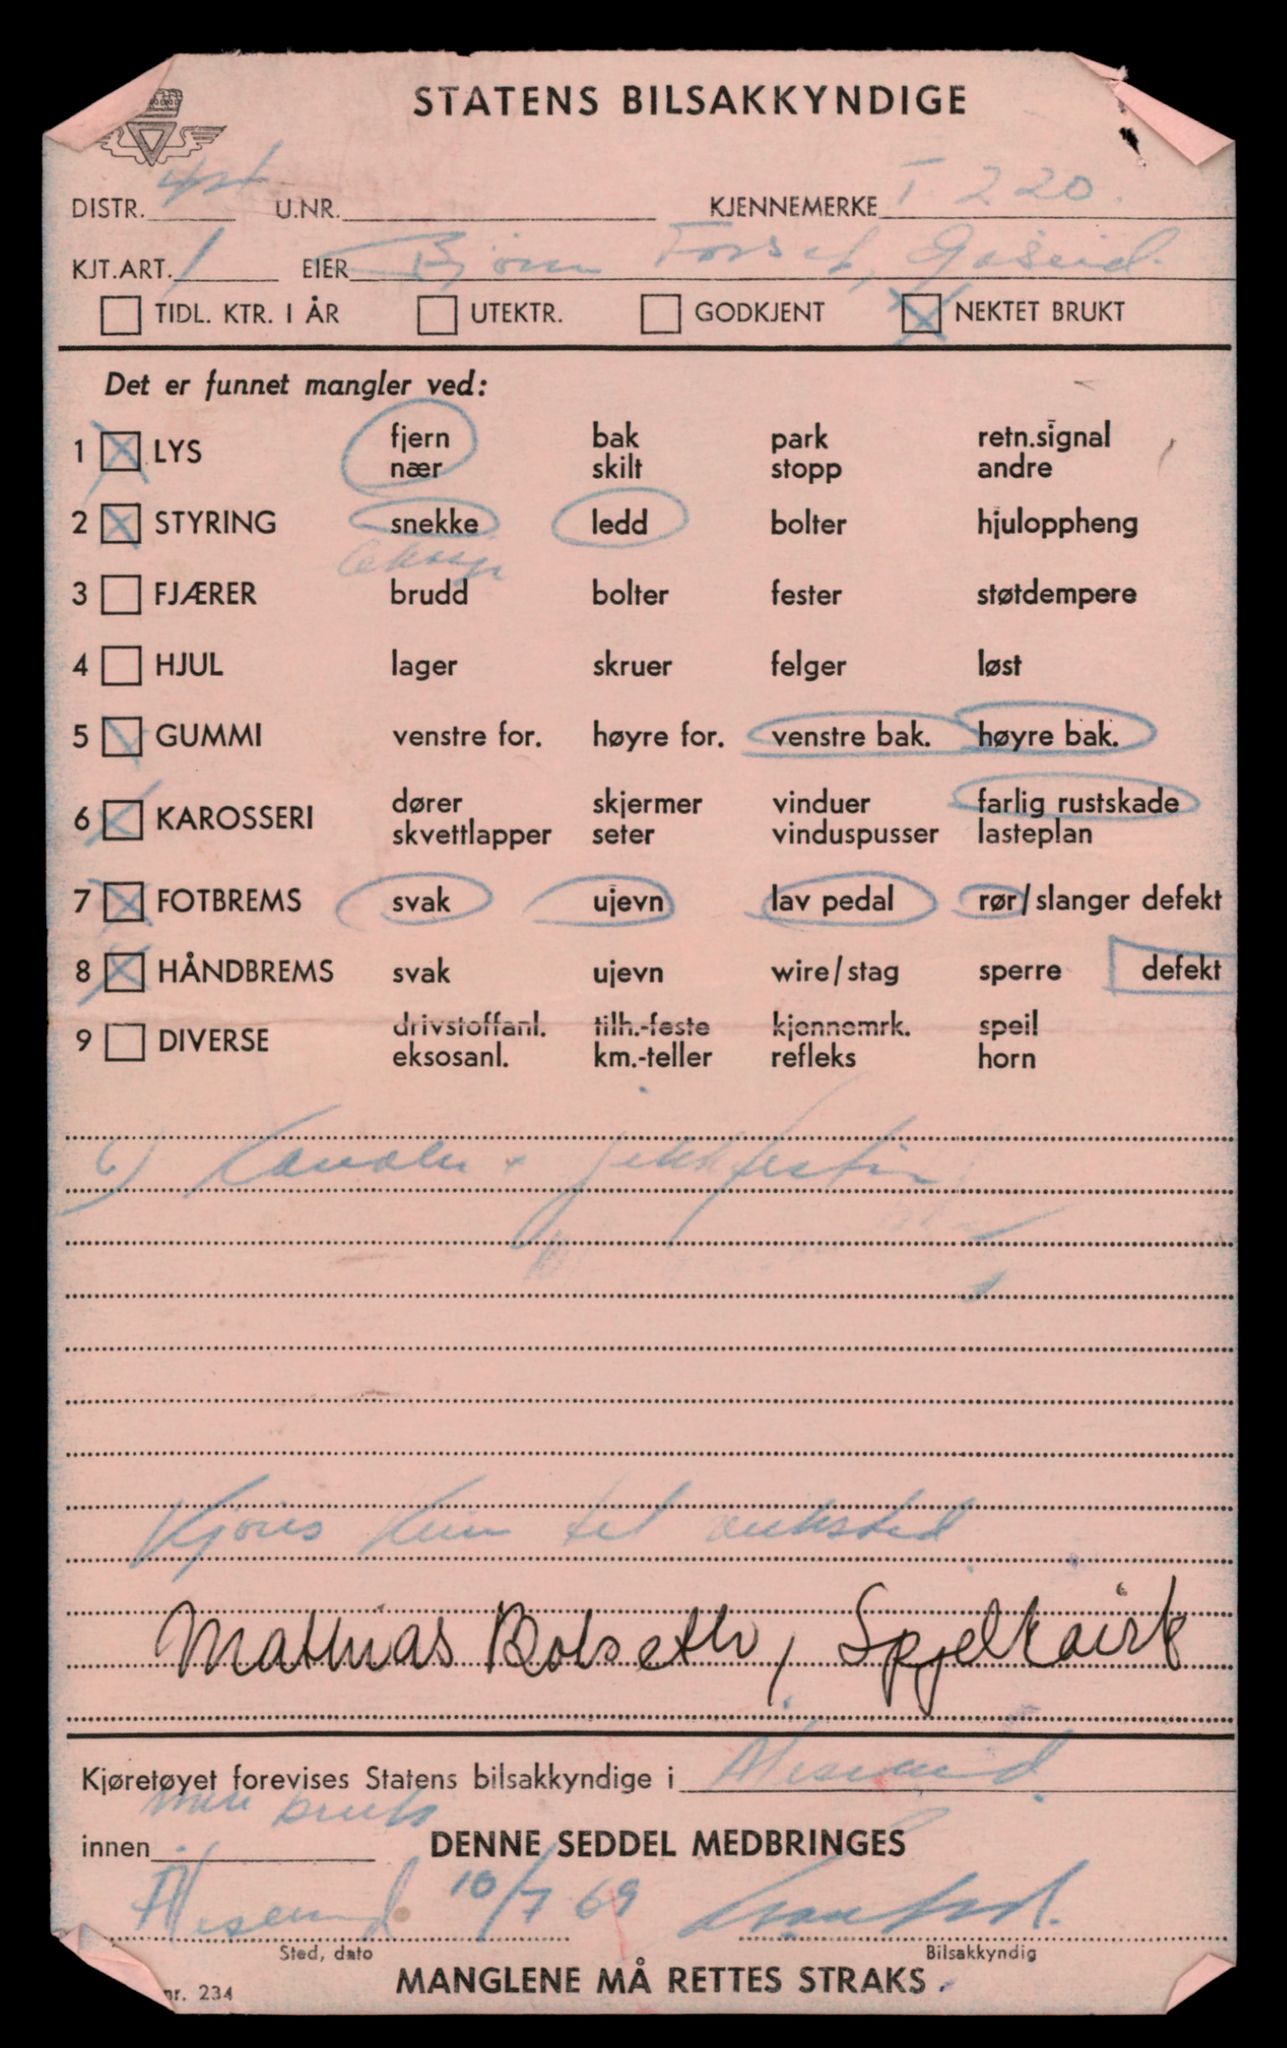 STATENS BILSAKKYNDIGE
DISTR. U.NR. KJENNEMERKE T 220.
KJT.ART. 1 EIER Bjørn Forset, Gåseid.
TIDL. KTR. I ÅR UTEKTR. GODKJENT NEKTET BRUKT
Det er funnet mangler ved:
1 LYS fjern bak park retn.signal
nær skilt stopp andre
2 STYRING snekke ledd bolter hjuloppheng
3 FJÆRER brudd bolter fester støtdempere
4 HJUL lager skruer felger løst
5 GUMMI venstre for. høyre for. venstre bak. høyre bak.
6 KAROSSERI dører skjermer vinduer farlig rustskade
skvettlapper seter vinduspusser lasteplan
7 FOTBREMS svak ujevn lav pedal rør/slanger defekt
8 HÅNDBREMS svak ujevn wire/stag sperre defekt
9 DIVERSE drivstoffanl. tilh.-feste kjennemrk. speil
eksosanl. km.-teller refleks horn
6) Kanaler + jekkfester
Kjøres kun til verksted
Mathias Bolseth, Spjelkavik
Kjøretøyet forevises Statens bilsakkyndige i Ålesund.
før bruk
innen DENNE SEDDEL MEDBRINGES
Ålesund 10/7 69
Sted, dato Bilsakkyndig
nr. 234 MANGLENE MÅ RETTES STRAKS.